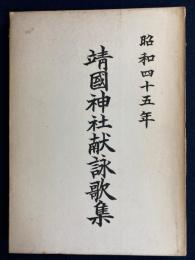 昭和四十五年
靖國神社献詠歌集